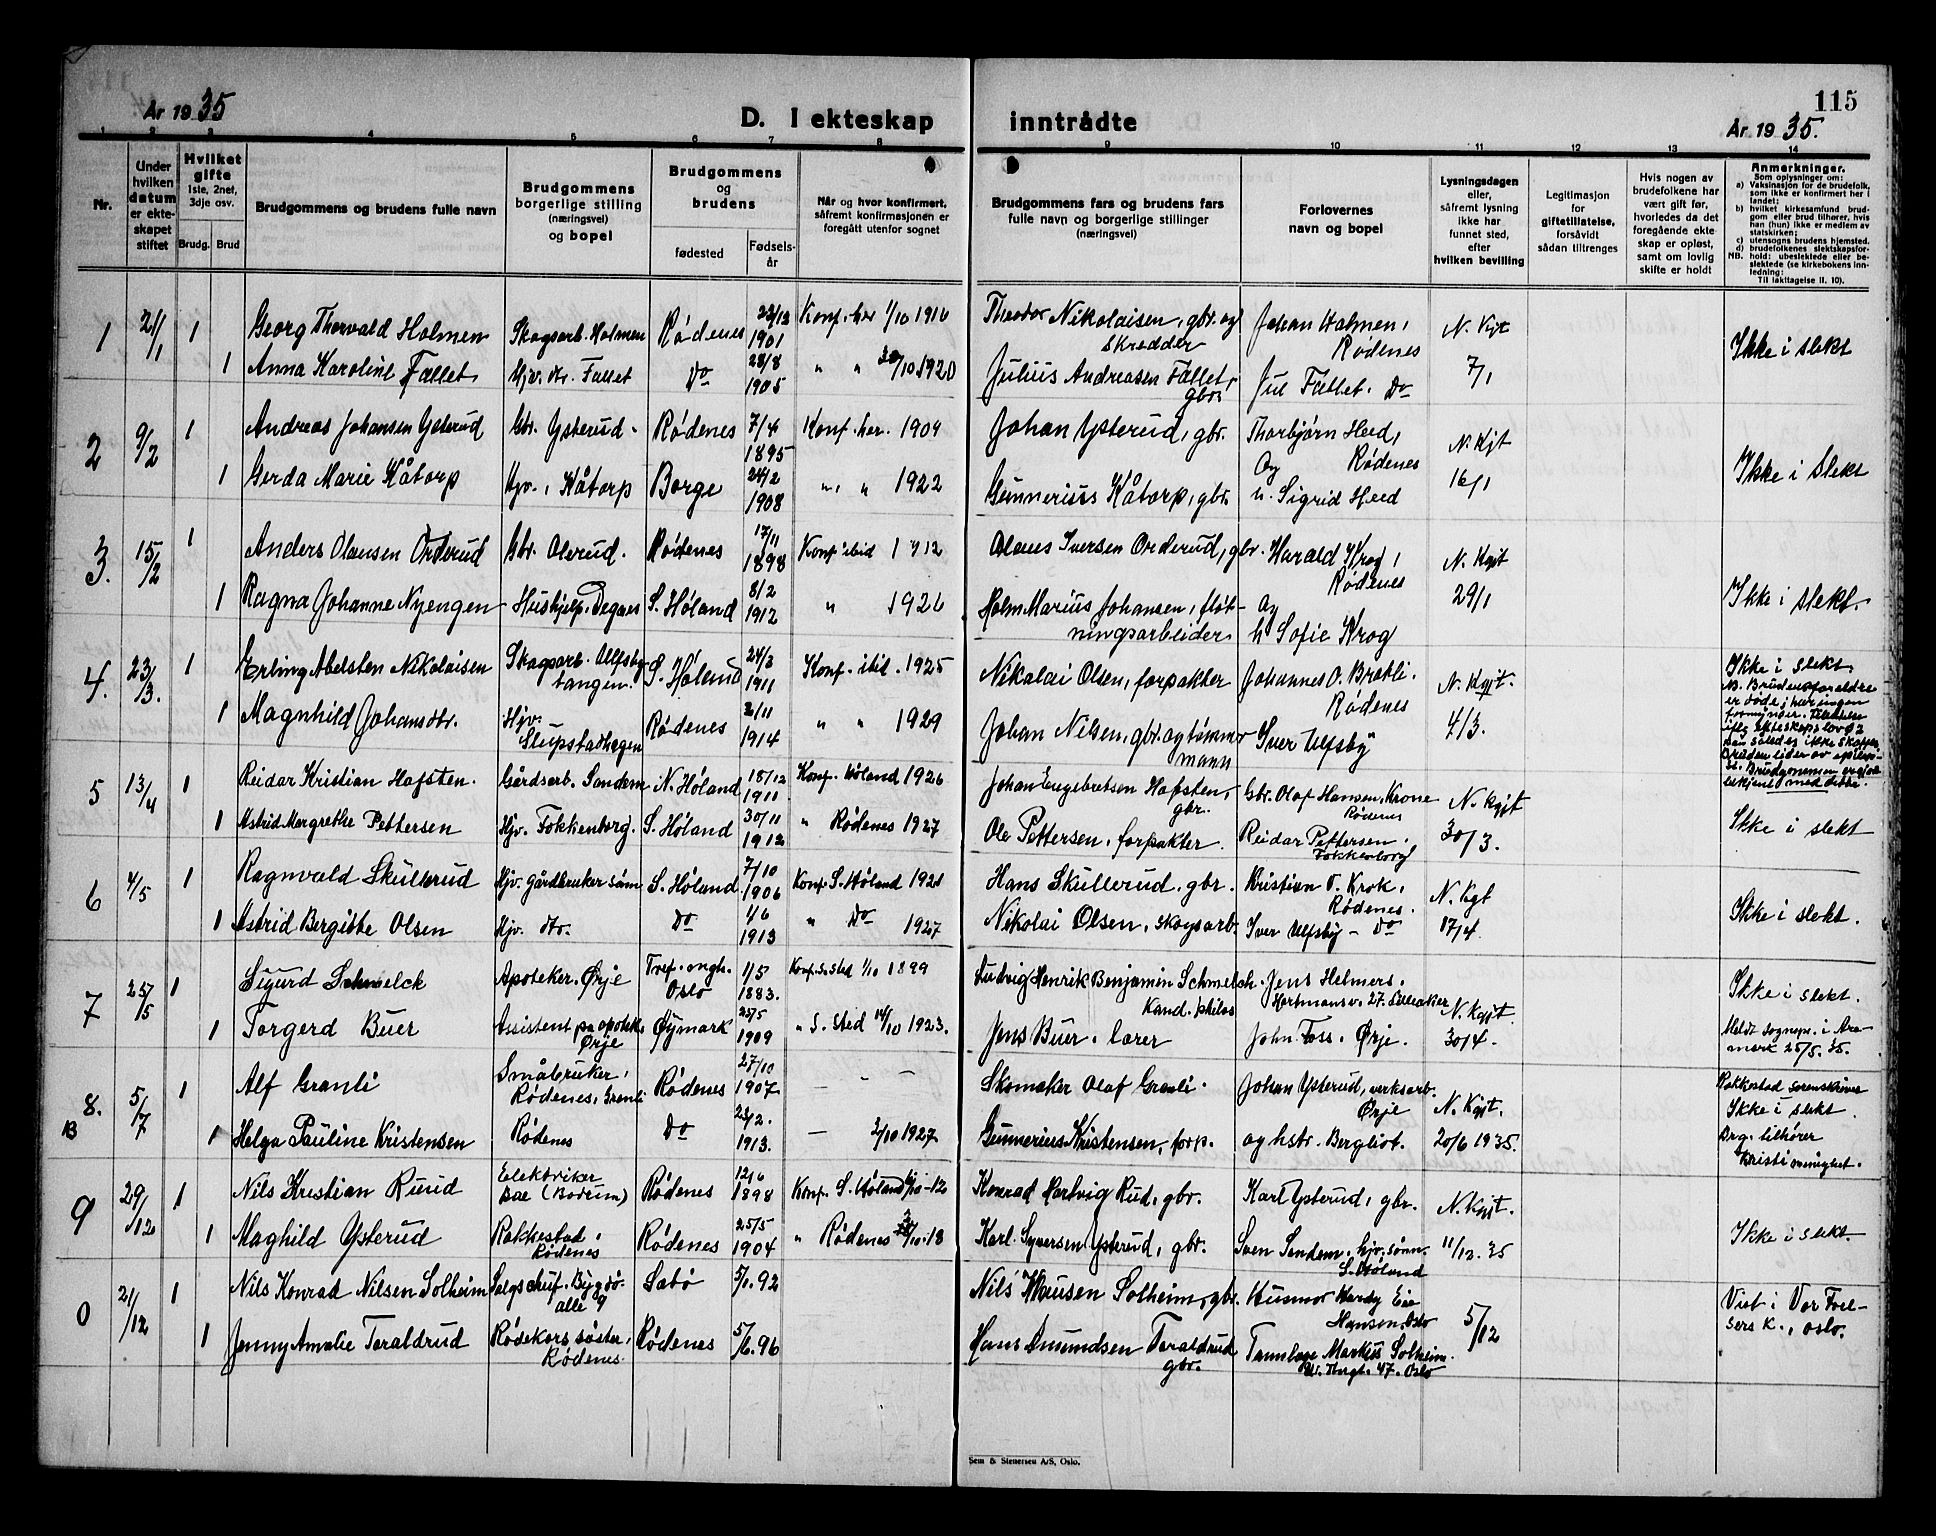 115
År 1935
D. I ekteskap inntrådte
År 1935.
1 2 3 4 5 6 7 8 9 10 11 12 13 14
Nr.
Under hvilken datum er ekteskapet stiftet
Hvilket gifte
1ste, 2net, 3dje osv.
Brudg. Brud
Brudgommens og brudens fulle navn
Brudgommens borgerlige stilling (næringsvei) og bopel
Brudgommens og brudens
fødested
Fødselsår
Når og hvor konfirmert, såfremt konfirmasjonen er foregått utenfor sognet
Brudgommens fars og brudens fars fulle navn og borgerlige stillinger (næringsvei)
Forlovernes navn og bopel
Lysningsdagen eller, såfremt lysning ikke har funnet sted, efter hvilken bevilling
Legitimasjon for giftetillatelse, forsåvidt sådan tiltrenges
Hvis nogen av brudefolkene har vært gift før, hvorledes da det foregående ekteskap er opløst, samt om lovlig skifte er holdt
Anmerkninger.
Som oplysninger om:
a) Vaksinasjon for de brudefolk, som ikke er konfirmert her i landet;
b) hvilket kirkesamfund brudgom eller brud tilhører, hvis han (hun) ikke er medlem av statskirken;
c) utensogns brudens hjemsted.
d) brudefolkenes slektskapsforhold: ubeslektede eller beslektede (se kirkebokens innledning:
NB.
Til iakttagelse II. 10).
1 2/1 1 Georg Thorvald Holmen Skogsarb. Holmen Rødenes 22/12 1901 Konf. her 1/10 1916 Theodor Nikolaisen, gbr. og skredder Johan Holmen, Rødenes N. Kgjt 7/1 Ikke i slekt
1 Anna Karoline Fallet Hjv. dtr. Fallet Do 28/8 1905 " " /10 1920 Julius Andreasen Fallet, gbr. Jul Fallet. Do
2 9/2 1 Andreas Johansen Ysterud Gbr. Ysterud. Rødenes 7/4 1895 Konf. her. 1909 Johan Ysterud, gbr. Thorbjørn Heed, Rødenes N. Kgjt 16/1 Ikke i slekt
1 Gerda Marie Kåtorp Hjv., Kåtorp Borge 24/2 1908 " " 1922 Gunnerius Kåtorp, gbr. Og h. Sigrid Heed
3. 15/2 1 Anders Olausen Orderud Gbr. Olerud. Rødenes 17/11 1898 Konf ibid 1912 Olaus Iversen Orderud, gbr. Harald Krog, Rødenes N. Kgjt 29/1 Ikke i slekt.
1 Ragna Johanne Nyengen Hushjelp. Degnes S. Høland 8/2 1912 " 1926 Holm Marius Johansen, fløtningsarbeider og h Sofie Krog
4. 23/3. 1 Erling Abelsten Nikolaisen Skogsarb. Ulfsbytangen. S. Høland 24/3 1911 Konf. ibid. 1925 Nikolai Olsen, forpakter Johannes O. Bratli. Rødenes N. Kgjt. 4/3. Ikke i slekt,
1 Magnhild Johansdtr. Hjv. Slupstadhagen Rødenes 2/11 1914 " " 1929 Johan Nilsen, gbr. og tømmermann Iver Ulfsby
5 13/4 1 Reidar Kristian Hafsten. Gårdsarb. Sandem N. Høland 18/12 1911 Konf. Høland 1926 Johan Engebretsen Hafsten, gbr. Gbr. Olaf Hansen, Krone Rødenes N. Kgjt 30/3. Ikke i slekt
1 Astrid Margrethe Pettersen Hjv. Fokkenborg. S. Høland 30/11 1912 " Rødenes 1927 Ole Pettersen, forpakter. Reidar Pettersen. Fokkenborg
6 4/5 1 Ragnvald Skullerud Hjv. gårdbrukersønn S. Høland 7/10 1906 Konf. S. Høland 1921 Hans Skullerud, gbr. Kristian O. Krok, Rødenes. N. Kgt 17/4. Ikke i slekt.
1 Astrid Bergitte Olsen Hjv. dtr. Do 1/6 1913 " Do 1927 Nikolai Olsen, skogsarb. Iver Ulfsby - Do
7 25/5 1 Sigurd Schmelck Apoteker. Ørje Oslo 1/5 1883. Konf. s. sted 1/10 1899 Ludvig Henrik Benjamin Schmelck. Kand. philos Jens Helmers, Hartmansv. 27. Lilleaker N. Kgjt. 30/4. Ikke i slekt.
1 Torgerd Buer Assistent på apotek. Ørje Øymark 25/5 1909 " S. sted 14/10 1923. Jens Buer, lærer John Foss. Ørje. Meldt sognepr. i Aremark 25/5.35.
8. B 5/7 1 Alf Granli Småbruker, Rødenes, Granli Rødenes 27/10 1907 — - — Skomaker Olaf Granli. Johan Ysterud, verksarb. Ørje N. Kgjt. 20/6 1935. Rakkestad sorenskriver Ikke i slekt.
1 Helga Pauline Kristensen Rødenes Do 23/2. 1913. — 2/10 1927 Gunnerius Kristensen, forp. og hstr. Bergliot. Brg. tilhører Kristi menighet.
9 29/12 1 Nils Kristian Ruud Elektriker Bae (Bodum) Rødenes 12/6 1898 Konf. S. Høland /10-12 Konrad Hartvig Rud, gbr. Karl Ysterud, gbr. N. Kgjt. 11/12.35 Ikke i slekt.
1 Maghild Ysterud Rakkestad, Rødenes Rødenes 25/5 1904 " Rødenes /10.18 Karl Syversen Ysterud, gbr. Sven Sandem, hjv. sønn. S. Høland
0 21/12 1 Nils Konrad Nilsen Solheim Salgschef. Bygdø alle 9 Sabø 5/1.92 Nils Knusen Solheim, gbr. Husmor Hardy Eie Hansen, Oslo 5/12 Viet i Vor Frelsers K., Oslo.
1 Jenny Amalie Taraldrud Rødekors søster, Rødenes. Rødenes 5/6.96 Hans Amundsen Taraldrud gbr. Tannlæge Markus Solheim. 47. Oslo
Sem & Stenersen A/S, Oslo.